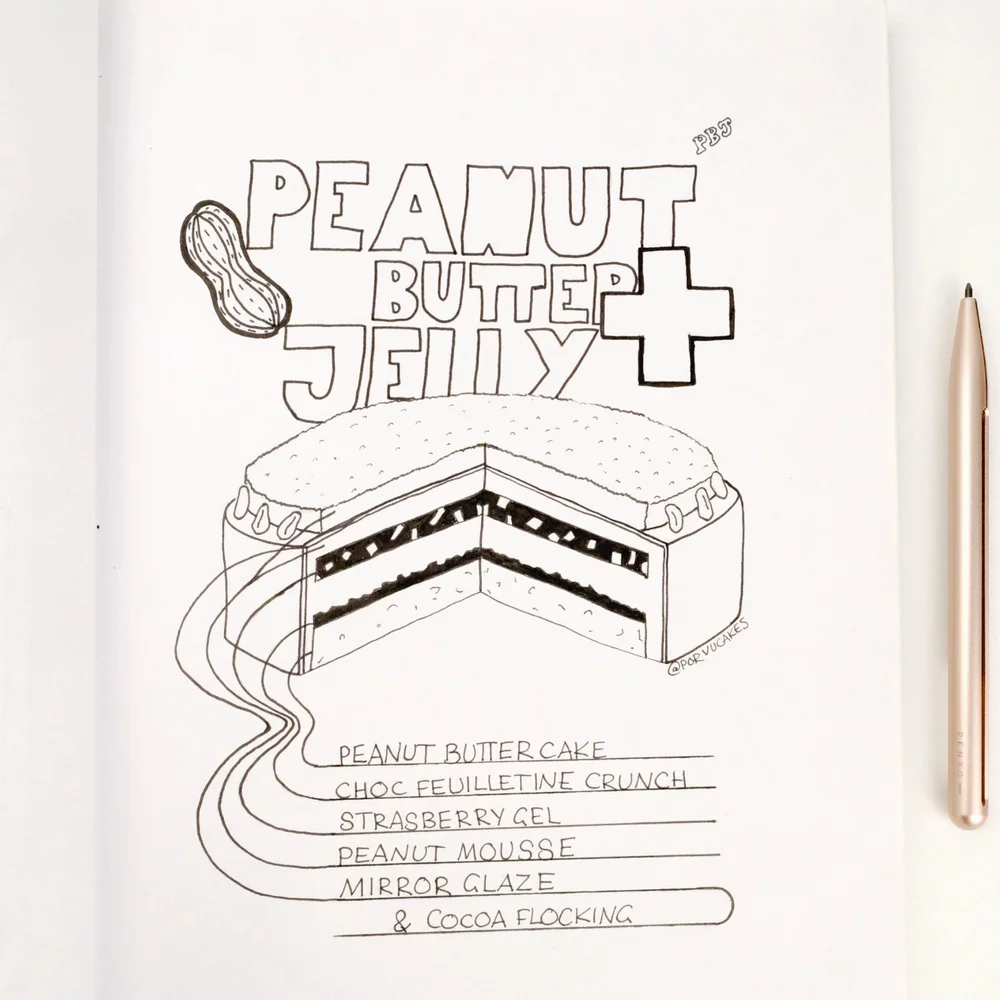 PBJ
PEANUT
BUTTER
JELLY
@PORVUCAKES
PEANUT BUTTER CAKE
CHOC FEUILLETINE CRUNCH
STRASBERRY GEL
PEANUT MOUSSE
MIRROR GLAZE
& COCOA FLOCKING
PENXO